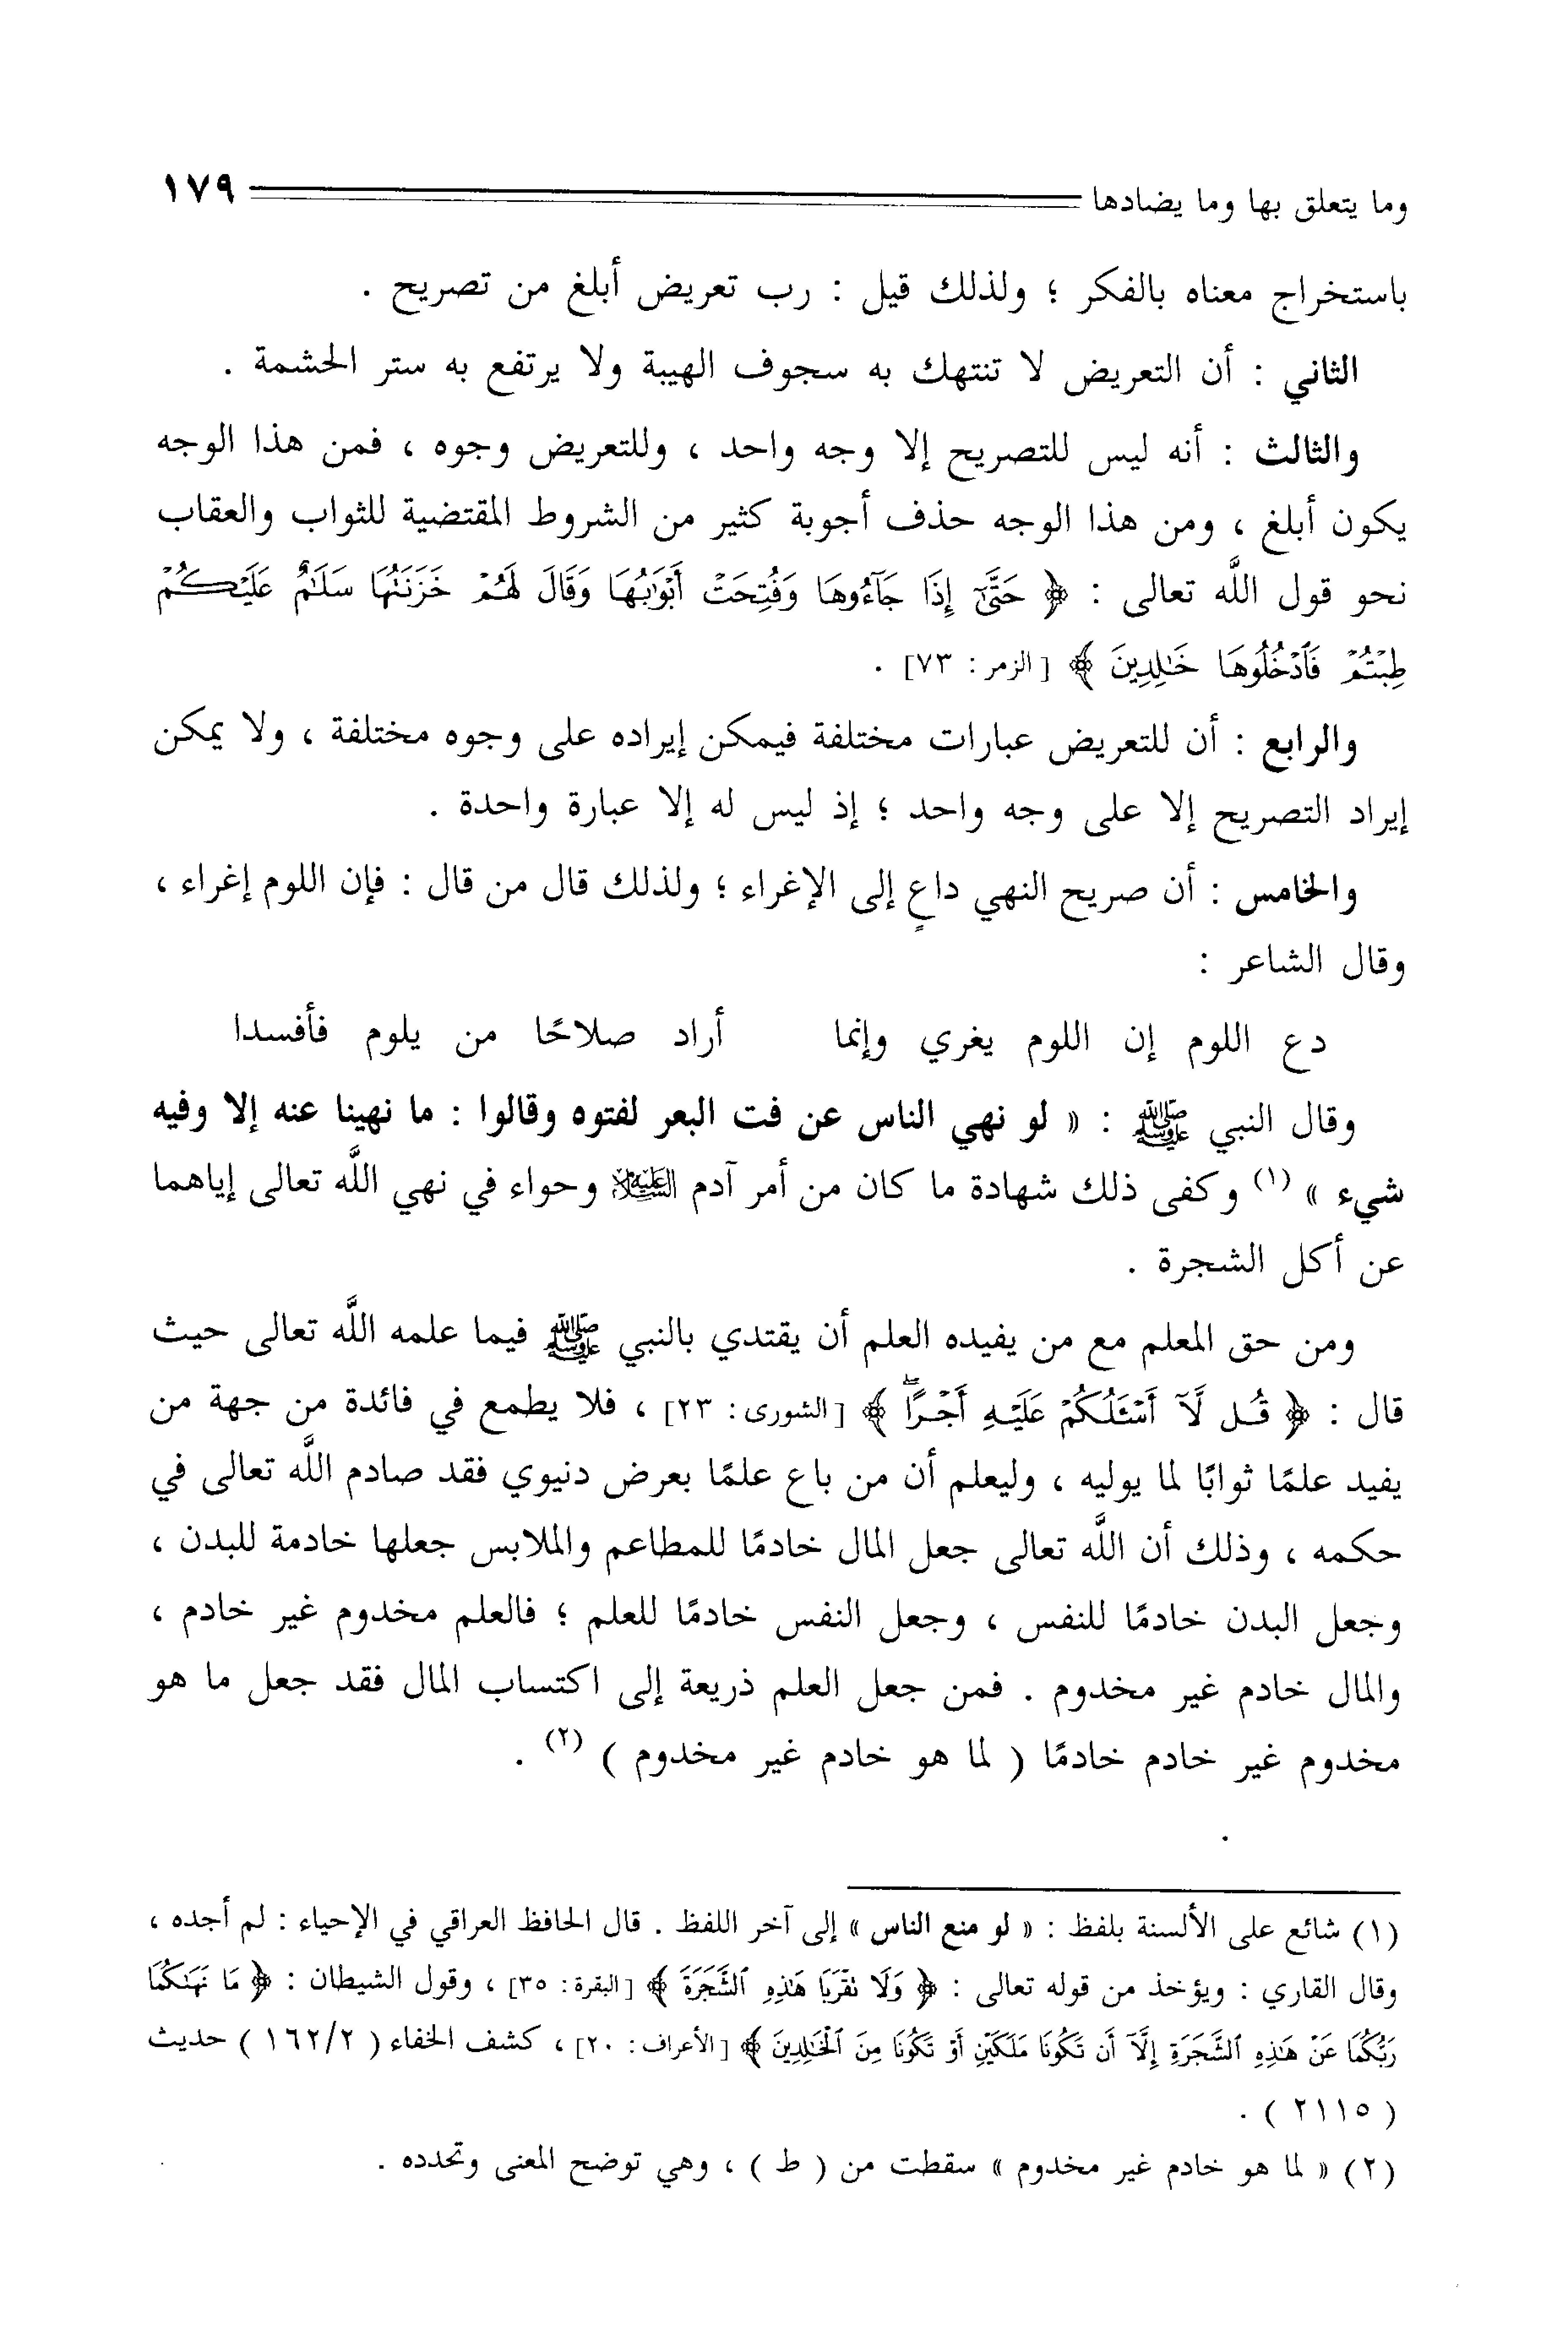 وما يتعلق بها وما يضادها ١٧٩
باستخراج معناه بالفكر ؛ ولذلك قيل : رب تعريض أبلغ من تصريح .
الثاني : أن التعريض لا تنتهك به سجوف الهيبة ولا يرتفع به ستر الحشمة .
والثالث : أنه ليس للتصريح إلا وجه واحد ، وللتعريض وجوه ، فمن هذا الوجه
يكون أبلغ ، ومن هذا الوجه حذف أجوبة كثير من الشروط المقتضية للثواب والعقاب
نحو قول اللَّه تعالى : ﴿ حَتَّىٰٓ إِذَا جَآءُوهَا وَفُتِحَتْ أَبْوَٰبُهَا وَقَالَ لَهُمْ خَزَنَتُهَا سَلَٰمٌ عَلَيْكُمْ
طِبْتُمْ فَٱدْخُلُوهَا خَٰلِدِينَ ﴾ [ الزمر : ٧٣] .
والرابع : أن للتعريض عبارات مختلفة فيمكن إيراده على وجوه مختلفة ، ولا يمكن
إيراد التصريح إلا على وجه واحد ؛ إذ ليس له إلا عبارة واحدة .
والخامس : أن صريح النهي داعٍ إلى الإغراء ؛ ولذلك قال من قال : فإن اللوم إغراء ،
وقال الشاعر :
دع اللوم إن اللوم يغري وإنما أراد صلاحًا من يلوم فأفسدا
وقال النبي ﷺ : « لو نهي الناس عن فت البعر لفتوه وقالوا : ما نهينا عنه إلا وفيه
شيء » (١) وكفى ذلك شهادة ما كان من أمر آدم عليه السلام وحواء في نهي اللَّه تعالى إياهما
عن أكل الشجرة .
ومن حق المعلم مع من يفيده العلم أن يقتدي بالنبي ﷺ فيما علمه اللَّه تعالى حيث
قال : ﴿ قُل لَّآ أَسْـَٔلُكُمْ عَلَيْهِ أَجْرًا ۖ ﴾ [ الشورى : ٢٣] ، فلا يطمع في فائدة من جهة من
يفيد علمًا ثوابًا لما يوليه ، وليعلم أن من باع علمًا بعرض دنيوي فقد صادم اللَّه تعالى في
حكمه ، وذلك أن اللَّه تعالى جعل المال خادمًا للمطاعم والملابس جعلها خادمة للبدن ،
وجعل البدن خادمًا للنفس ، وجعل النفس خادمًا للعلم ؛ فالعلم مخدوم غير خادم ،
والمال خادم غير مخدوم . فمن جعل العلم ذريعة إلى اكتساب المال فقد جعل ما هو
مخدوم غير خادم خادمًا ( لما هو خادم غير مخدوم ) (٢) .
(١) شائع على الألسنة بلفظ : « لو منع الناس » إلى آخر اللفظ . قال الحافظ العراقي في الإحياء : لم أجده ،
وقال القاري : ويؤخذ من قوله تعالى : ﴿ وَلَا نَقْرَبَا هَٰذِهِ ٱلشَّجَرَةَ ﴾ [ البقرة : ٣٥] ، وقول الشيطان : ﴿ مَا نَهَىٰكُمَا
رَبُّكُمَا عَنْ هَٰذِهِ ٱلشَّجَرَةِ إِلَّآ أَن تَكُونَا مَلَكَيْنِ أَوْ تَكُونَا مِنَ ٱلْخَٰلِدِينَ ﴾ [ الأعراف : ٢٠] ، كشف الخفاء ( ١٦٢/٢ ) حديث
( ٢١١٥ ) .
(٢) « لما هو خادم غير مخدوم » سقطت من ( ط ) ، وهي توضح المعنى وتحدده .